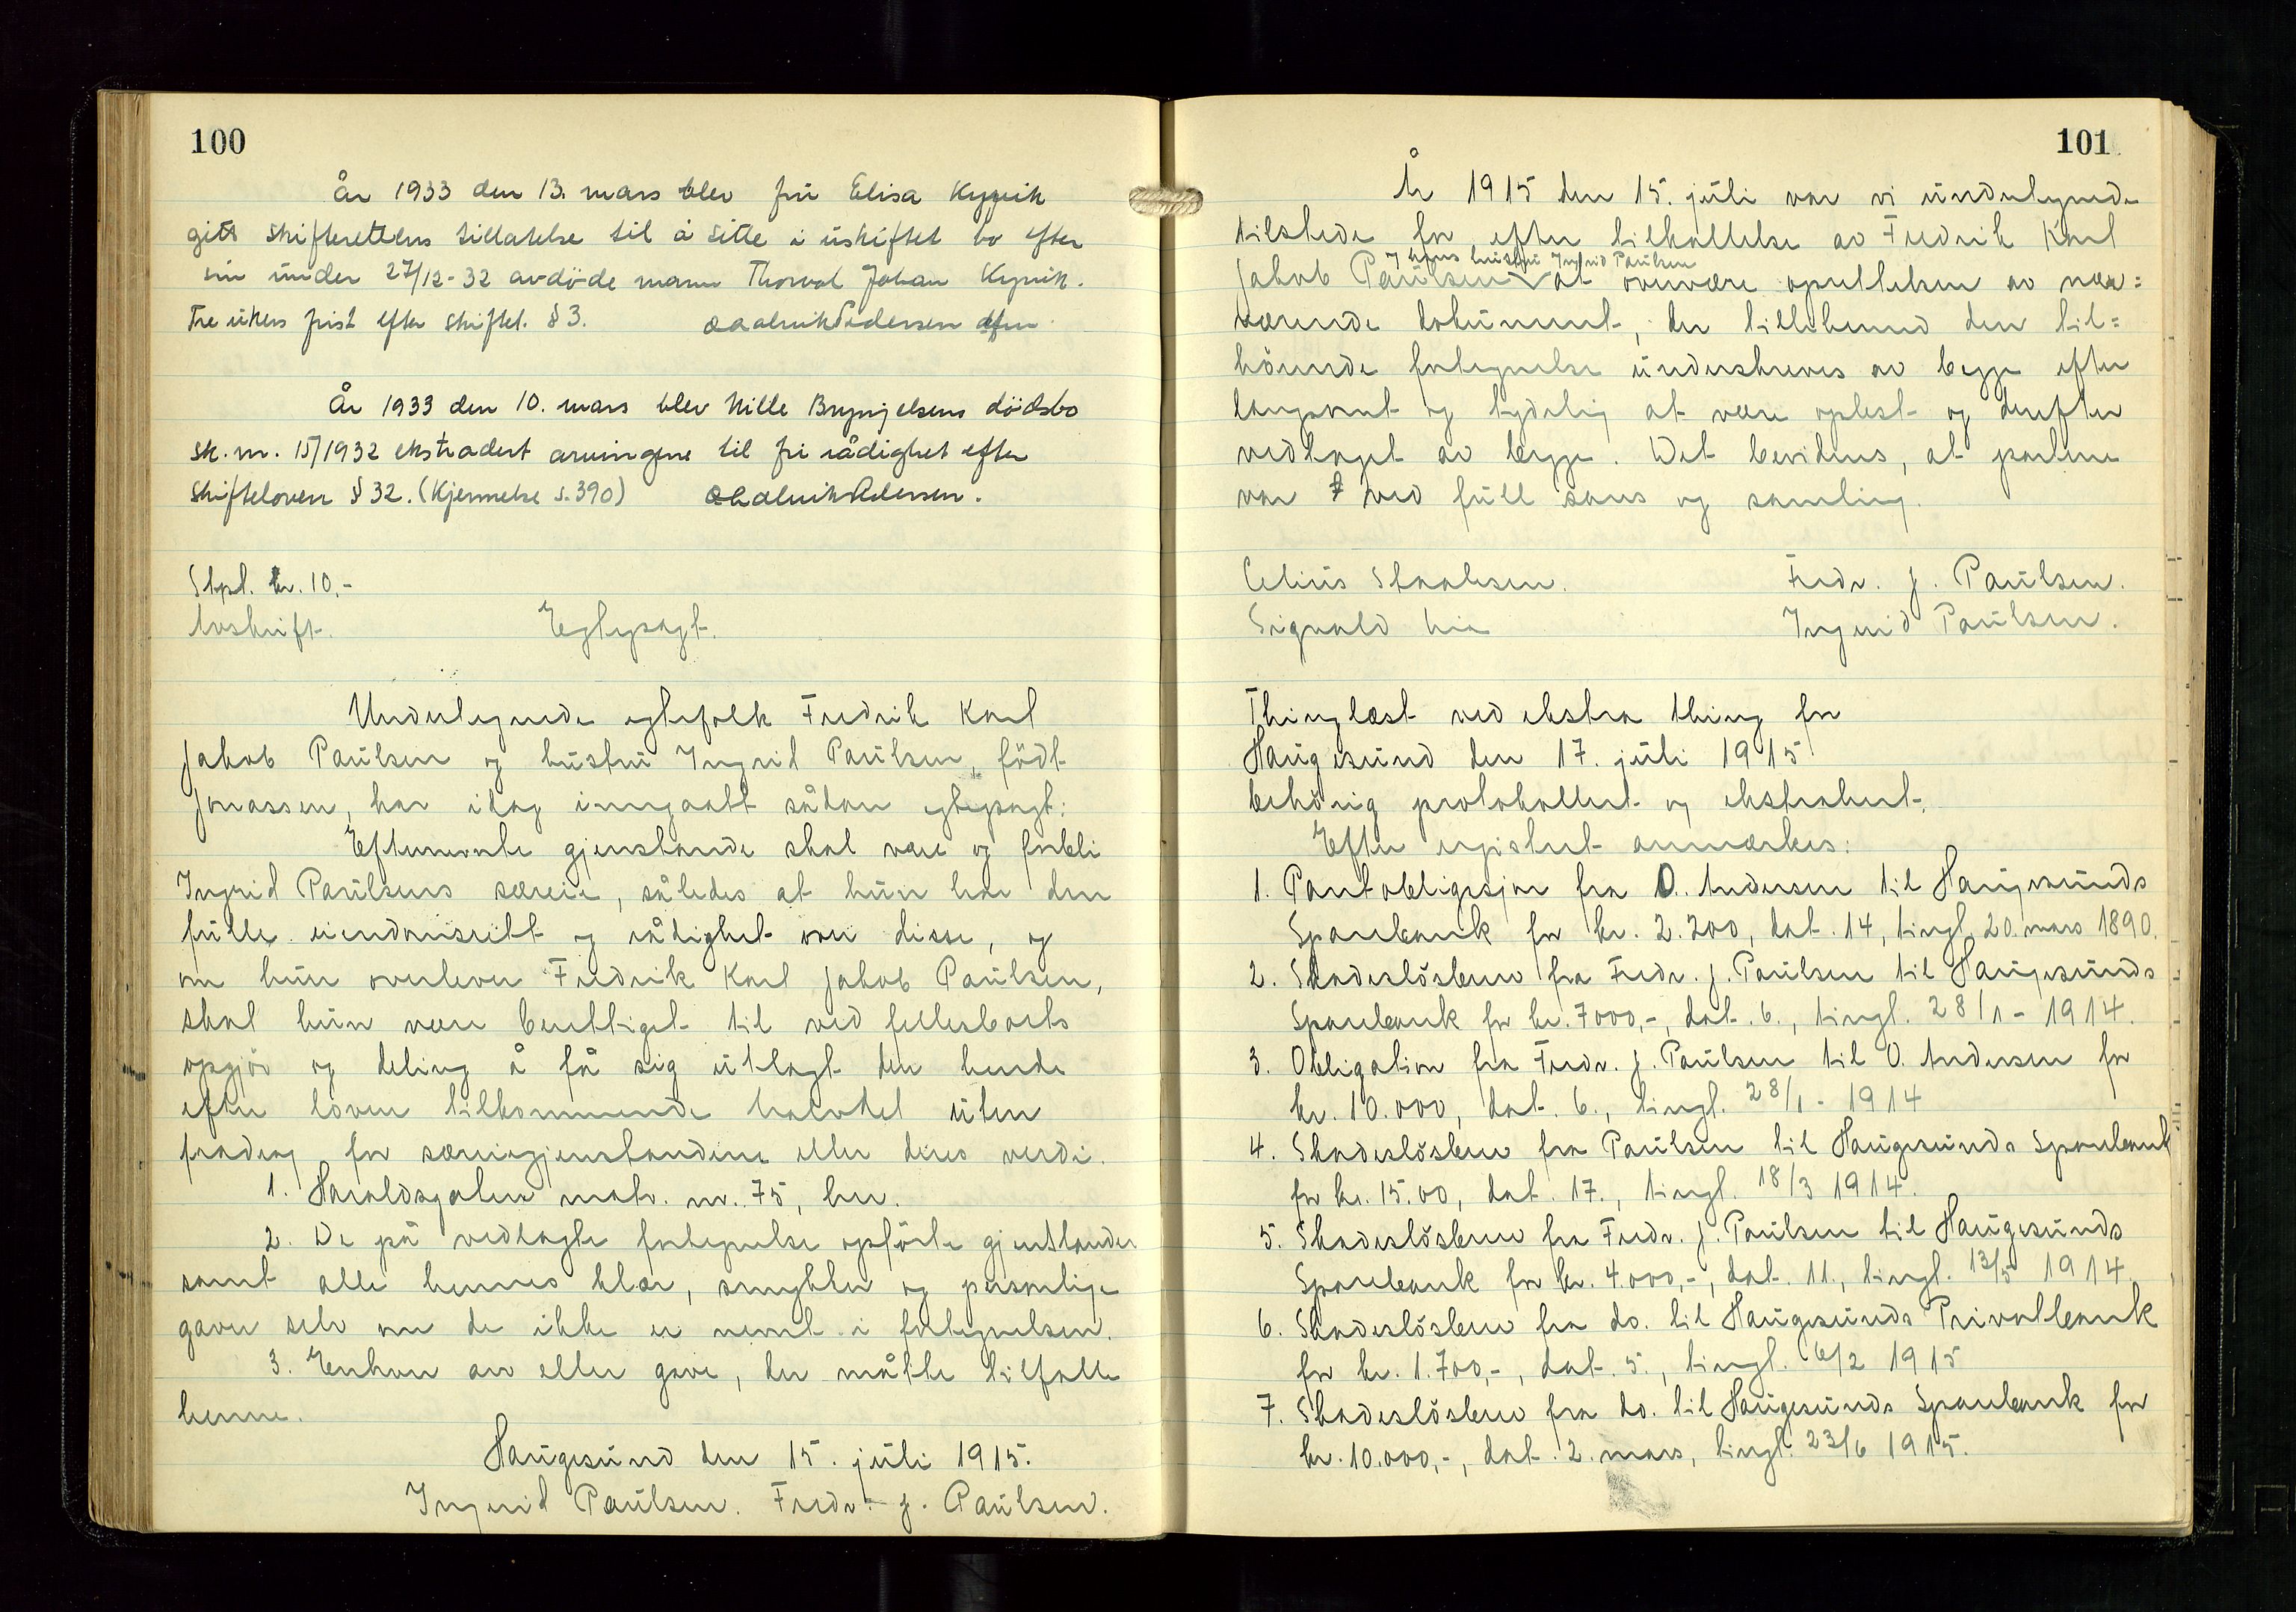 100
År 1933 den 13. mars blev fru Elisa Kyvik
gitt skifterettens tillatelse til å sitte i uskiftet bo efter
sin under 27/12-32 avdöde mann Thorval Johan Kyvik.
Tre ukers frist efter skiftel. § 3.
År 1933 den 10. mars blev Nille Brynjelsens dödsbo
sk. nr. 15/1932 ekstradert arvingene til fri rådighet efter
Skifteloven § 32. (Kjennelse s. 390)
Stpl. kr. 10.-
Avskrift. Egtepagt.
Undertegnede egtefolk Fredrik Karl
Jakob Paulsen og hustru Ingrid Paulsen, født
Jonassen, har idag inngaatt sådan egtepagt:
Efternevnte gjenstande skal være og forbli
Ingrid Paulsens særeie, således at hun har den
fulle eiendomsrett og rådighet over disse, og
om hun overlever Fredrik Karl Jakob Paulsen,
skal hun være berettiget til ved fellesboets
opgjör og deling å få sig utlagt den hende
efter loven tilkommende halvdel uten
fradrag for særeiegjenstandene eller deres verdi.
1. Haraldsgaten matr. nr. 75, her.
2. De på vedlagte fortegnelse opförte gjenstander
samt alle hennes klær, smykker og personlige
gaver selv om de ikke er nevnt i fortegnelsen.
3. Enhver arv eller gave, der måtte tilfalle
henne.
Haugesund den 15. juli 1915.
Ingrid Paulsen. Fredr. J. Paulsen.
101
År 1915 den 15. juli var vi undertegnede
tilstede for efter tilkallelse av Fredrik Karl
Jakob Paulsen og hans hustru Ingrid Paulsen at overvære oprettelsen av nær=
værende dokument, der tillikemed den til=
hörende fortegnelse underskreves av begge efter
langsomt og tydelig at være oplest og derefter
vedtaget av begge. Det bevidnes, at partene
var ved full sans og samling.
Celius Staalesen. Fredr. J. Paulsen.
Sigvald Lie Ingrid Paulsen.
Thinglæst ved ekstra thing for
Haugesund den 17. juli 1915
behörig protokollert og ekstrahert.
Efter registret anmærkes:
1. Pantobligasjon fra O. Andersen til Haugesunds
Sparebank for kr. 2.200, dat. 14, tingl. 20. mars 1890.
2. Skadeslösbrev fra Fredr. J. Paulsen til Haugesunds
Sparebank for kr. 7000,-, dat. 6., tingl. 28/1 - 1914.
3. Obligation fra Fredr. J. Paulsen til O. Andersen for
kr. 10.000, dat. 6., tingl. 28/1 - 1914
4. Skadeslösbrev fra Paulsen til Haugesunds Sparebank
for kr. 15.00, dat. 17., tingl. 18/3 1914.
5. Skadeslösbrev fra Fredr. J. Paulsen til Haugesunds
Sparebank for kr. 4.000,-, dat. 11., tingl. 13/5 1914.
6. Skadeslösbrev fra do. til Haugesunds Privatbank
for kr. 1.700,-, dat. 5., tingl. 6/2 1915
7. Skadeslösbrev fra do. til Haugesunds Sparebank for
kr. 10.000,-, dat. 2. mars, tingl. 23/6 1915.